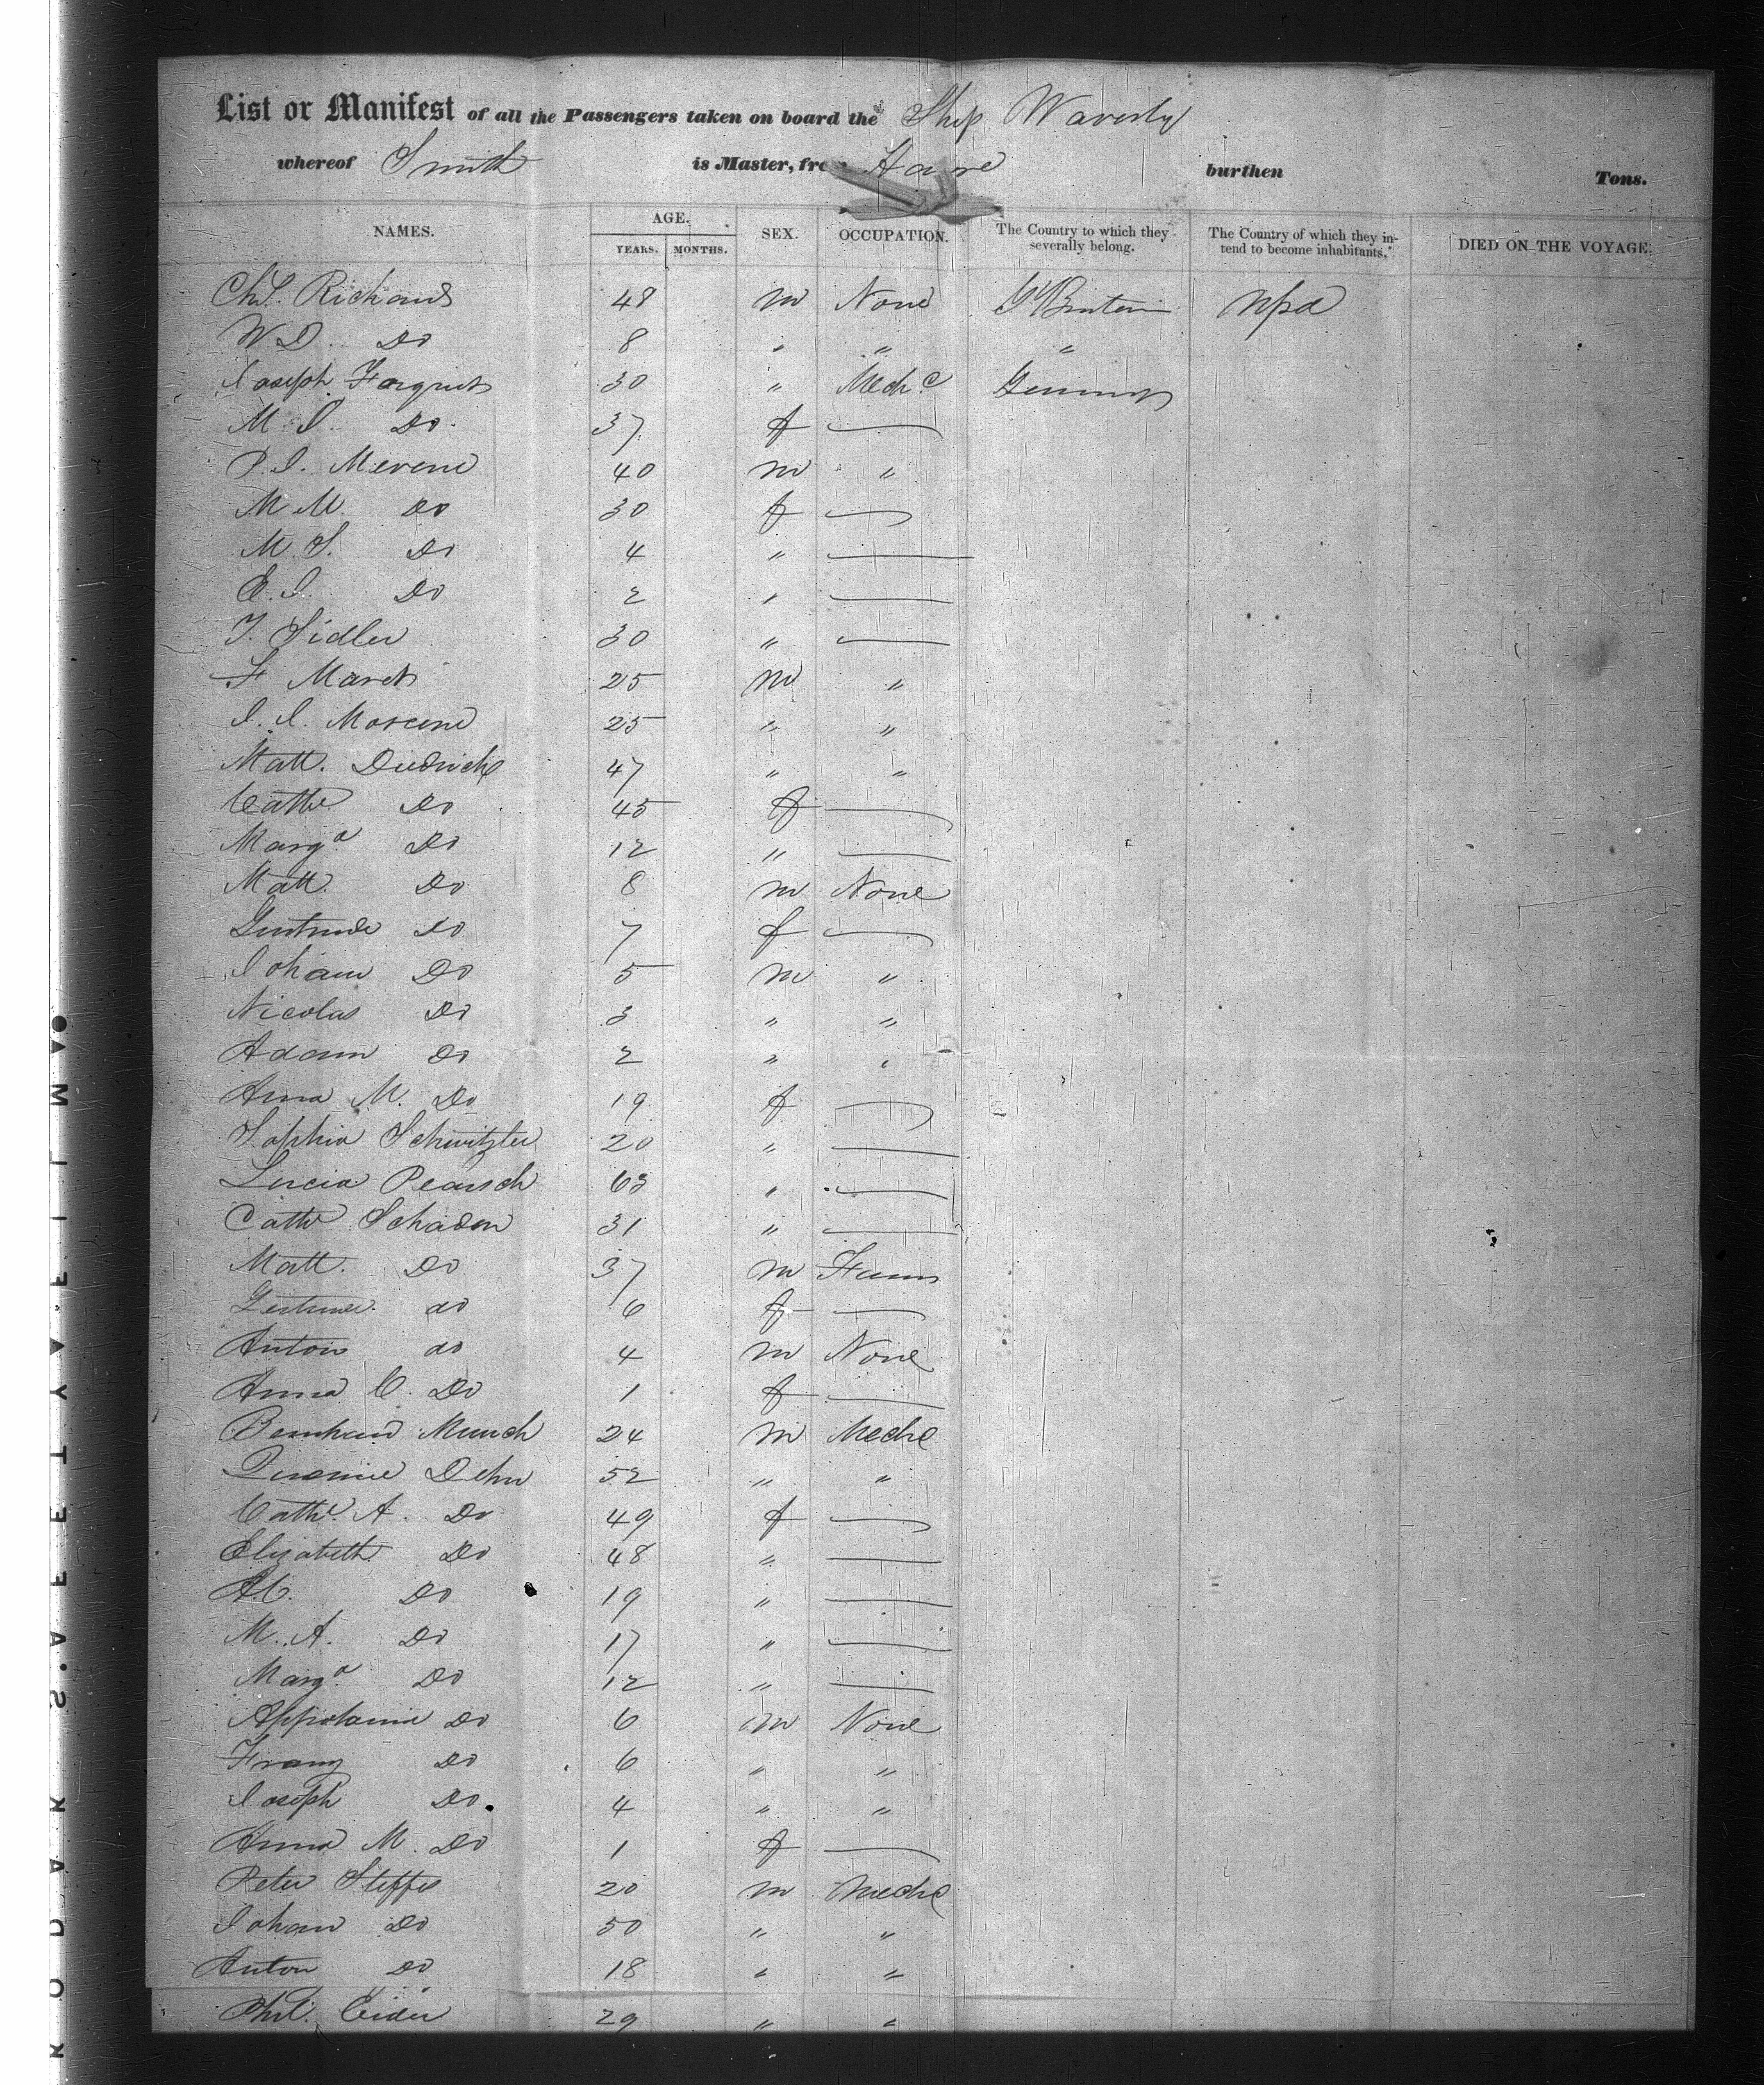 List or Manifest of all the Passengers taken on board the Ship Waverly
whereof Smith is Master, from Havre burthen Tons.
NAMES. AGE. YEARS. MONTHS. SEX. OCCUPATION. The Country to which they severally belong. The Country of which they intend to become inhabitants. DIED ON THE VOYAGE.
Chs. Richards 48 m None Gt Britain
W D. Do 8 " " "
Joseph 30 " Mech.c Germany
M. J. Do. 37 f
P. J. Merene 40 m "
M M. Do 30 f
M. S. Do 4 "
E. J. Do 2 "
T. Sidler 30 "
F 25 m "
J. J. 25 " "
Matt. Diedrich 47 " "
Cathe Do 45 f
Marga Do 12 "
Matt. Do 8 m None
Gertrude do 7 f
Johann Do 5 m "
Nicolas Do 3 " "
Adam Do 2 " "
Anna M. Do 19 f
Sophia 20 "
Lucia 63 "
Cathe Schaden 31 "
Matt. Do 37 m Farmr
Gertrude do 6 f
Anton do 4 m None
Anna C. Do 1 f
Bernhard Munch 24 m Mechc
Dehn 52 " "
Cathe. A. Do 49 f
Elizabeth Do 48 "
A.C. Do 19 "
M. A. Do 17 "
Marga Do 12 "
Appolonia Do 6 m None
Franz Do 6 " "
Joseph Do. 4 " "
Anna M. Do 1 f
Peter Steffes 20 m Mechc
Johann Do 50 " "
Anton Do 18 " "
Phil. 29 " "